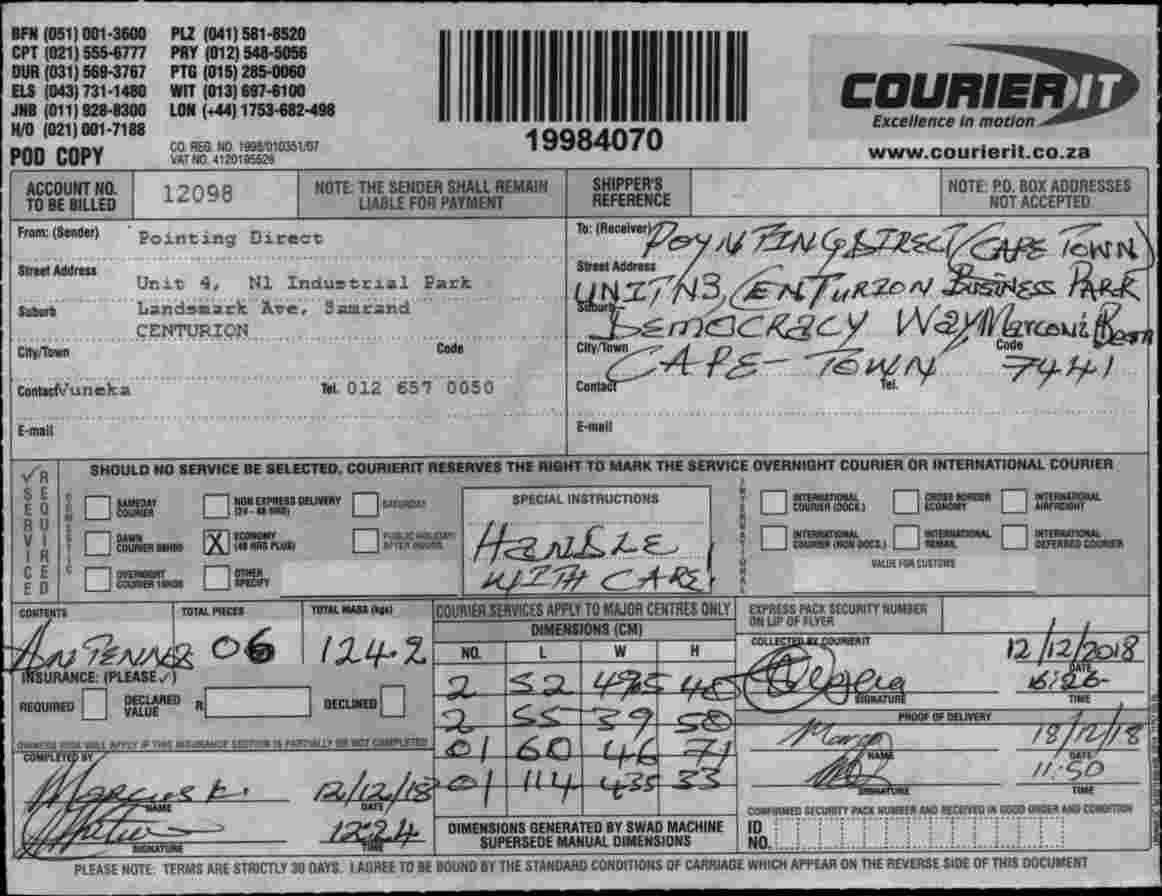 BFN (051) 001-3600 PLZ (041) 581-8520
CPT (021) 555-6777 PRY (012) 548-5056
DUR (031) 569-3767 PTG (015) 285-0060
ELS (043) 731-1480 WIT (013) 697-6100
JNB (011) 928-8300 LON (+44) 1753-682-498
H/O (021) 001-7188
POD COPY
CO. REG. NO. 1998/010351/07
VAT NO. 4120195528
19984070
COURIERIT
Excellence in motion
www.courierit.co.za
ACCOUNT NO. TO BE BILLED 12098
NOTE: THE SENDER SHALL REMAIN LIABLE FOR PAYMENT
SHIPPER'S REFERENCE
NOTE: P.O. BOX ADDRESSES NOT ACCEPTED
From: (Sender) Pointing Direct
Street Address
Unit 4, N1 Industrial Park
Suburb Landsmark Ave, Samrand
CENTURION
City/Town Code
Contact Vuneka Tel. 012 657 0050
E-mail
To: (Receiver) POYNTING DIRECT (CAPE TOWN)
Street Address
UNIT N3, CENTURION BUSINESS PARK
Suburb
DEMOCRACY WAY, Marconi Beam
City/Town CAPE-TOWN Code 7441
Contact Tel.
E-mail
SERVICE REQUIRED
SHOULD NO SERVICE BE SELECTED, COURIERIT RESERVES THE RIGHT TO MARK THE SERVICE OVERNIGHT COURIER OR INTERNATIONAL COURIER
DOMESTIC
SAMEDAY COURIER
NON EXPRESS DELIVERY (24 - 48 HRS)
SATURDAY
DAWN COURIER 08H00
X ECONOMY (48 HRS PLUS)
PUBLIC HOLIDAY/ AFTER HOURS
OVERNIGHT COURIER 10H30
OTHER SPECIFY
SPECIAL INSTRUCTIONS
HANDLE
WITH CARE
INTERNATIONAL
INTERNATIONAL COURIER (DOCS.)
CROSS BORDER ECONOMY
INTERNATIONAL AIRFREIGHT
INTERNATIONAL COURIER (NON DOCS.)
INTERNATIONAL
INTERNATIONAL DEFERRED COURIER
VALUE FOR CUSTOMS
CONTENTS TOTAL PIECES TOTAL MASS (kgs)
ANTENNA 06 124.2
INSURANCE: (PLEASE ✓)
REQUIRED DECLARED VALUE R DECLINED
OWNERS RISK WILL APPLY IF THIS INSURANCE SECTION IS PARTIALLY OR NOT COMPLETED
COMPLETED BY
Marcus K. 12/12/18
NAME DATE
12:24
SIGNATURE TIME
COURIER SERVICES APPLY TO MAJOR CENTRES ONLY
DIMENSIONS (CM)
NO. L W H
2 52 49.5 48
2 55 39 50
01 60 46 71
01 114 43.5 33
DIMENSIONS GENERATED BY SWAD MACHINE
SUPERSEDE MANUAL DIMENSIONS
EXPRESS PACK SECURITY NUMBER
ON LIP OF FLYER
COLLECTED BY COURIERIT
12/12/2018
DATE
16:26
SIGNATURE TIME
PROOF OF DELIVERY
18/12/18
NAME DATE
11:50
SIGNATURE TIME
CONFIRMED SECURITY PACK NUMBER AND RECEIVED IN GOOD ORDER AND CONDITION
ID NO.
PLEASE NOTE: TERMS ARE STRICTLY 30 DAYS. I AGREE TO BE BOUND BY THE STANDARD CONDITIONS OF CARRIAGE WHICH APPEAR ON THE REVERSE SIDE OF THIS DOCUMENT